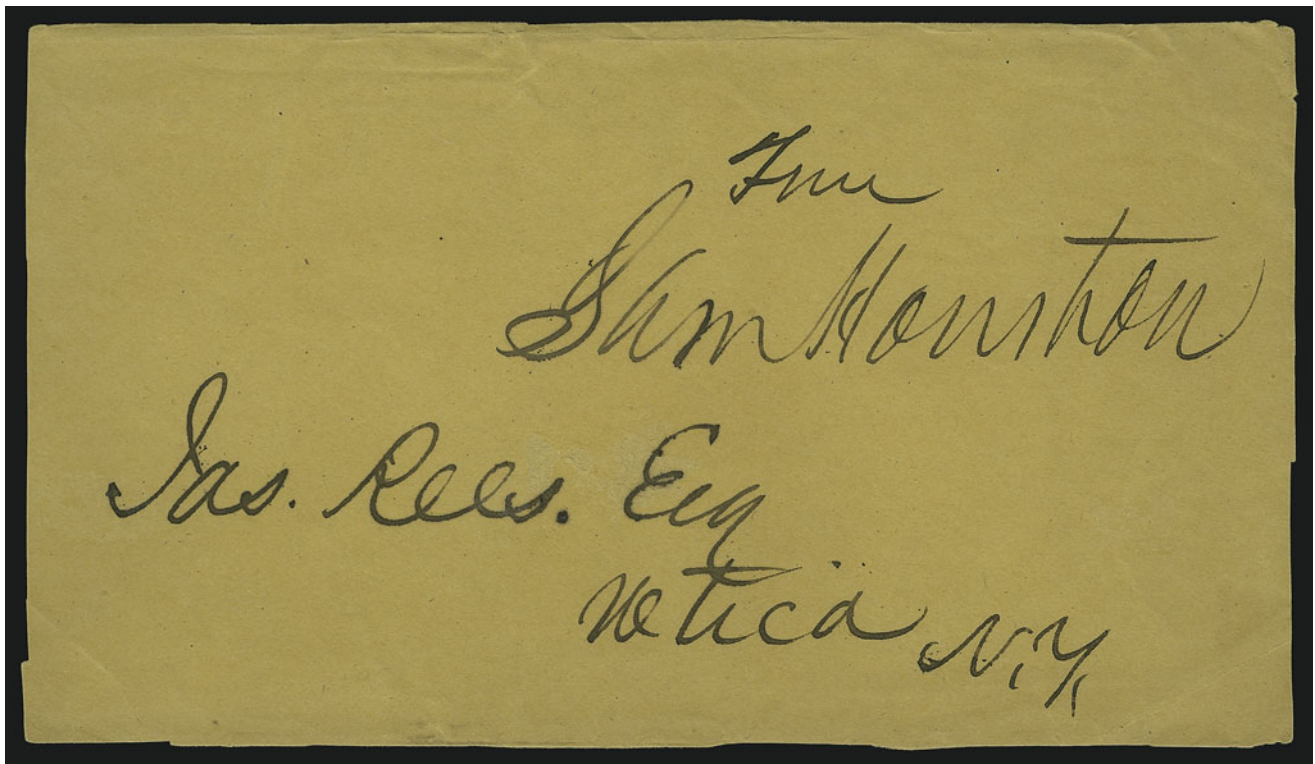 Free
Sam Houston
Jas. Rees. Esq
Utica N.Y.